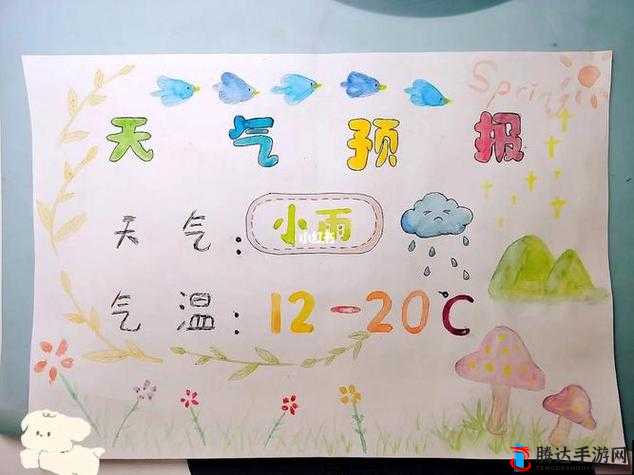 Spring
天气预报
天气：小雨
小红书
气温：12-20°C
腾达手游网